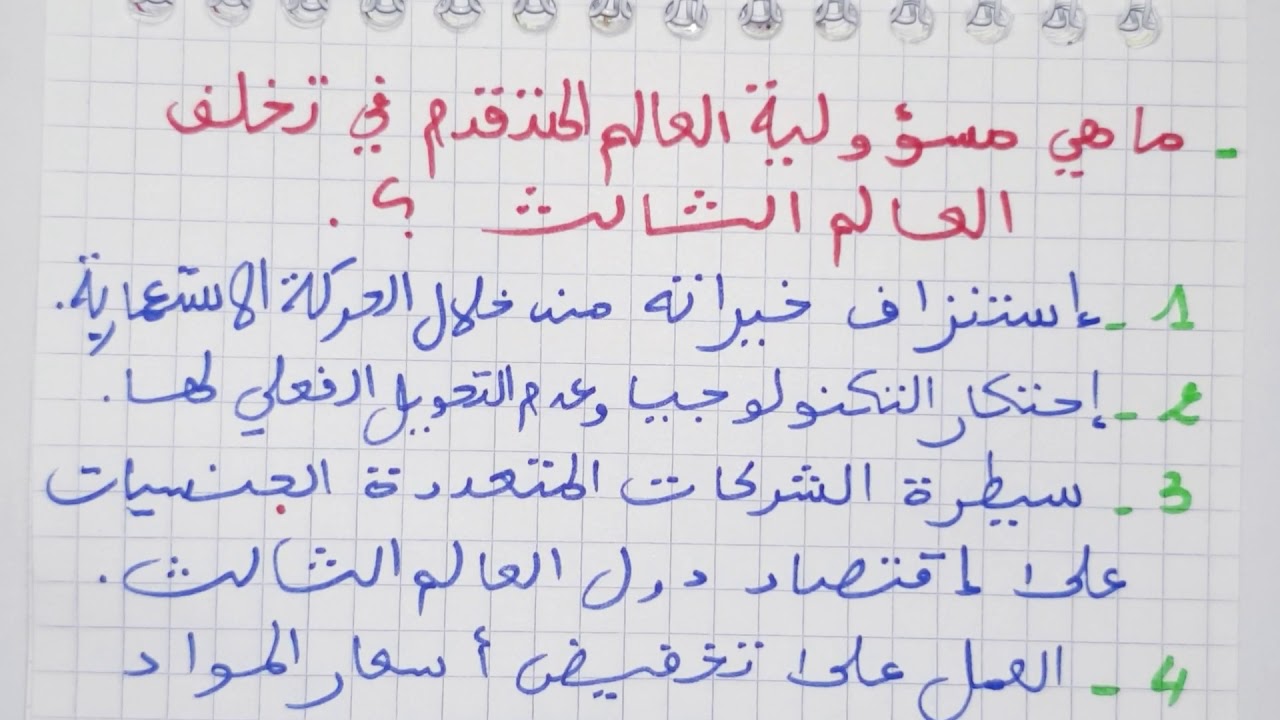 - ما هي مسؤولية العالم المتقدم في تخلف
العالم الثالث ؟.
1 - إستنزاف خيراته من خلال الحركة الاستعمارية.
2 - إحتكار التكنولوجيا وعدم التحويل الفعلي لها.
3 - سيطرة الشركات المتعددة الجنسيات
على اقتصاد دول العالم الثالث.
4 - العمل على تخفيض أسعار المواد